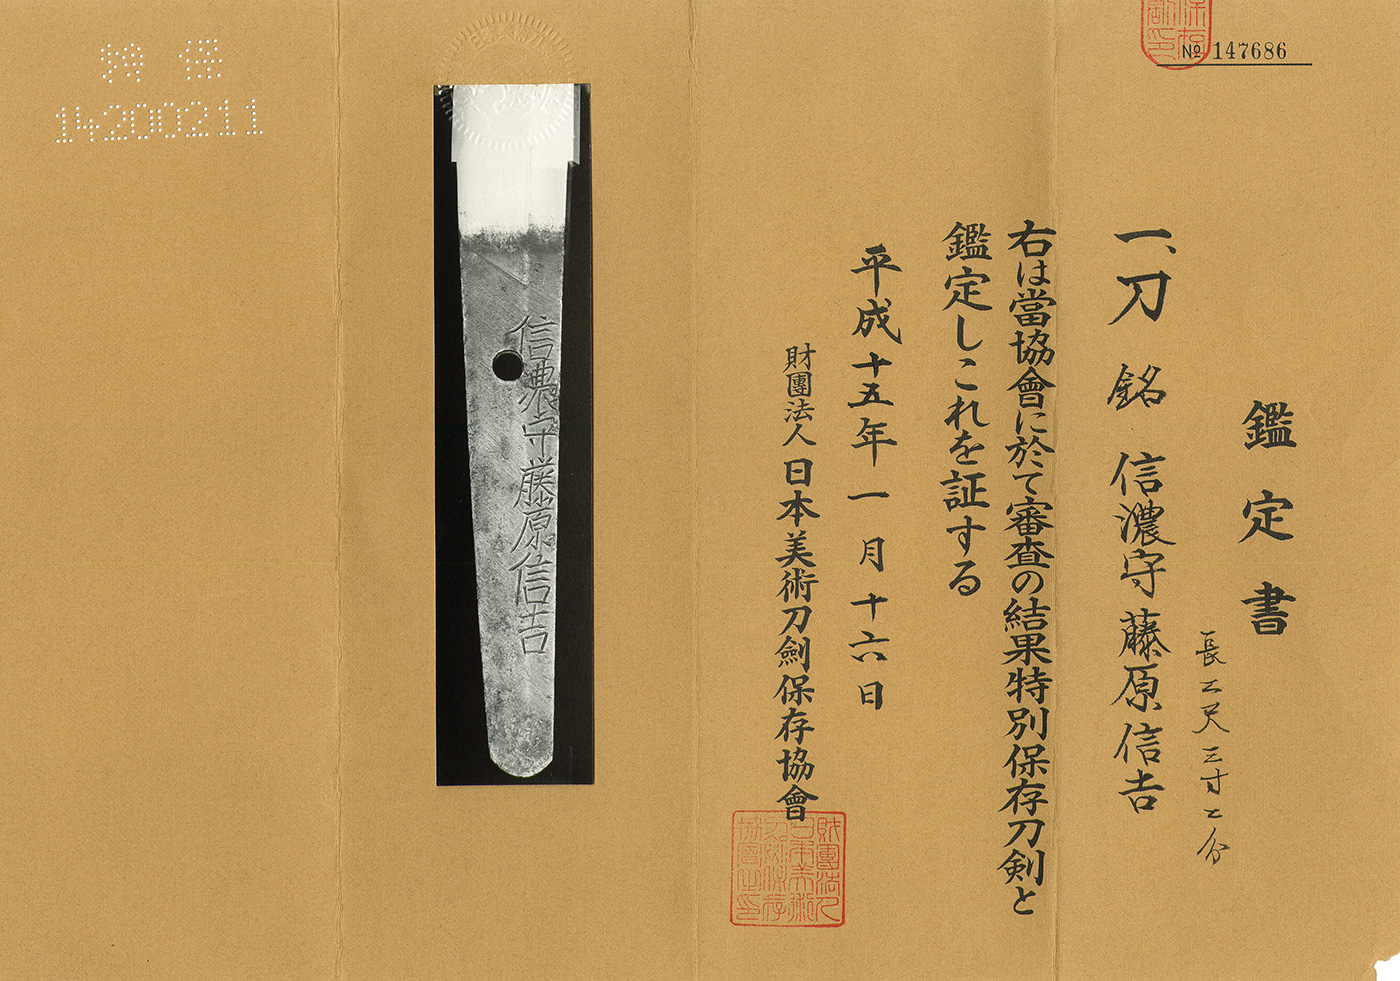 № 147686
鑑定書
一、刀 銘 信濃守藤原信吉
長二尺三寸二分
右は當協會に於て審査の結果特別保存刀剣と
鑑定しこれを証する
平成十五年一月十六日
財團法人日本美術刀劍保存協會
信濃守藤原信吉
特 保
14200211